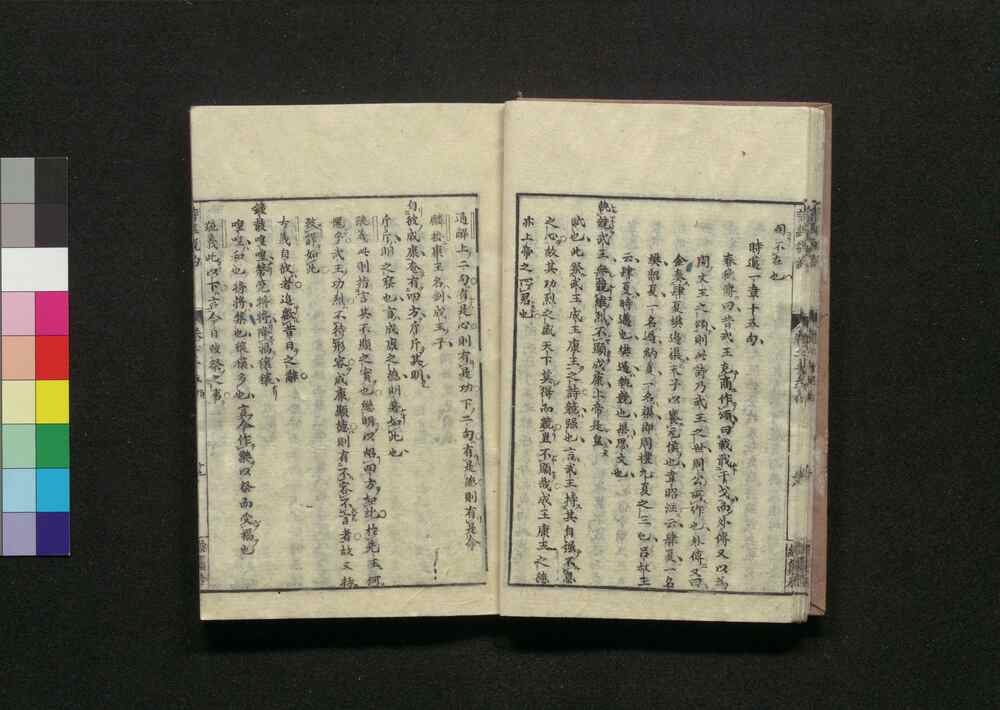 用不在也
時邁一章十五句
春秋傳曰昔武王克商作頌曰載戢干戈而外傳又以爲
周文王之頌則此詩乃武王之世周公所作也外傳又曰
金奏肆夏樊遏渠天子以饗元侯也韋昭注云肆夏一名
樊韶夏一名遏納夏一名渠即周禮九夏之三也呂叔玉
云肆夏時邁也樊遏執競也渠思文也
執競武王無競維烈不顯成康上帝是皇
賦也此祭武王成王康王之詩競强也言武王持其自强不息
之心故其功烈之盛天下莫得而競豈不顯哉成王康王之德
亦上帝之所君也
通解上二句有是心則有是功下二句有是德則有是命
麟按康王名釗成王子
自彼成康奄有四方斤斤其明
斤斤明之察也言成康之德明著如此也
疏義此則指言其不顯之實也
武王功烈不待形容成康顯德則有不容不言者故又特
致詳如此
古義自彼者追數昔日之辭
鐘鼓喤喤磬筦將將降福穰穰
喤喤和也將將集也穰穰多也言今作樂以祭而受福也
疏義此以下言今日致祭之事